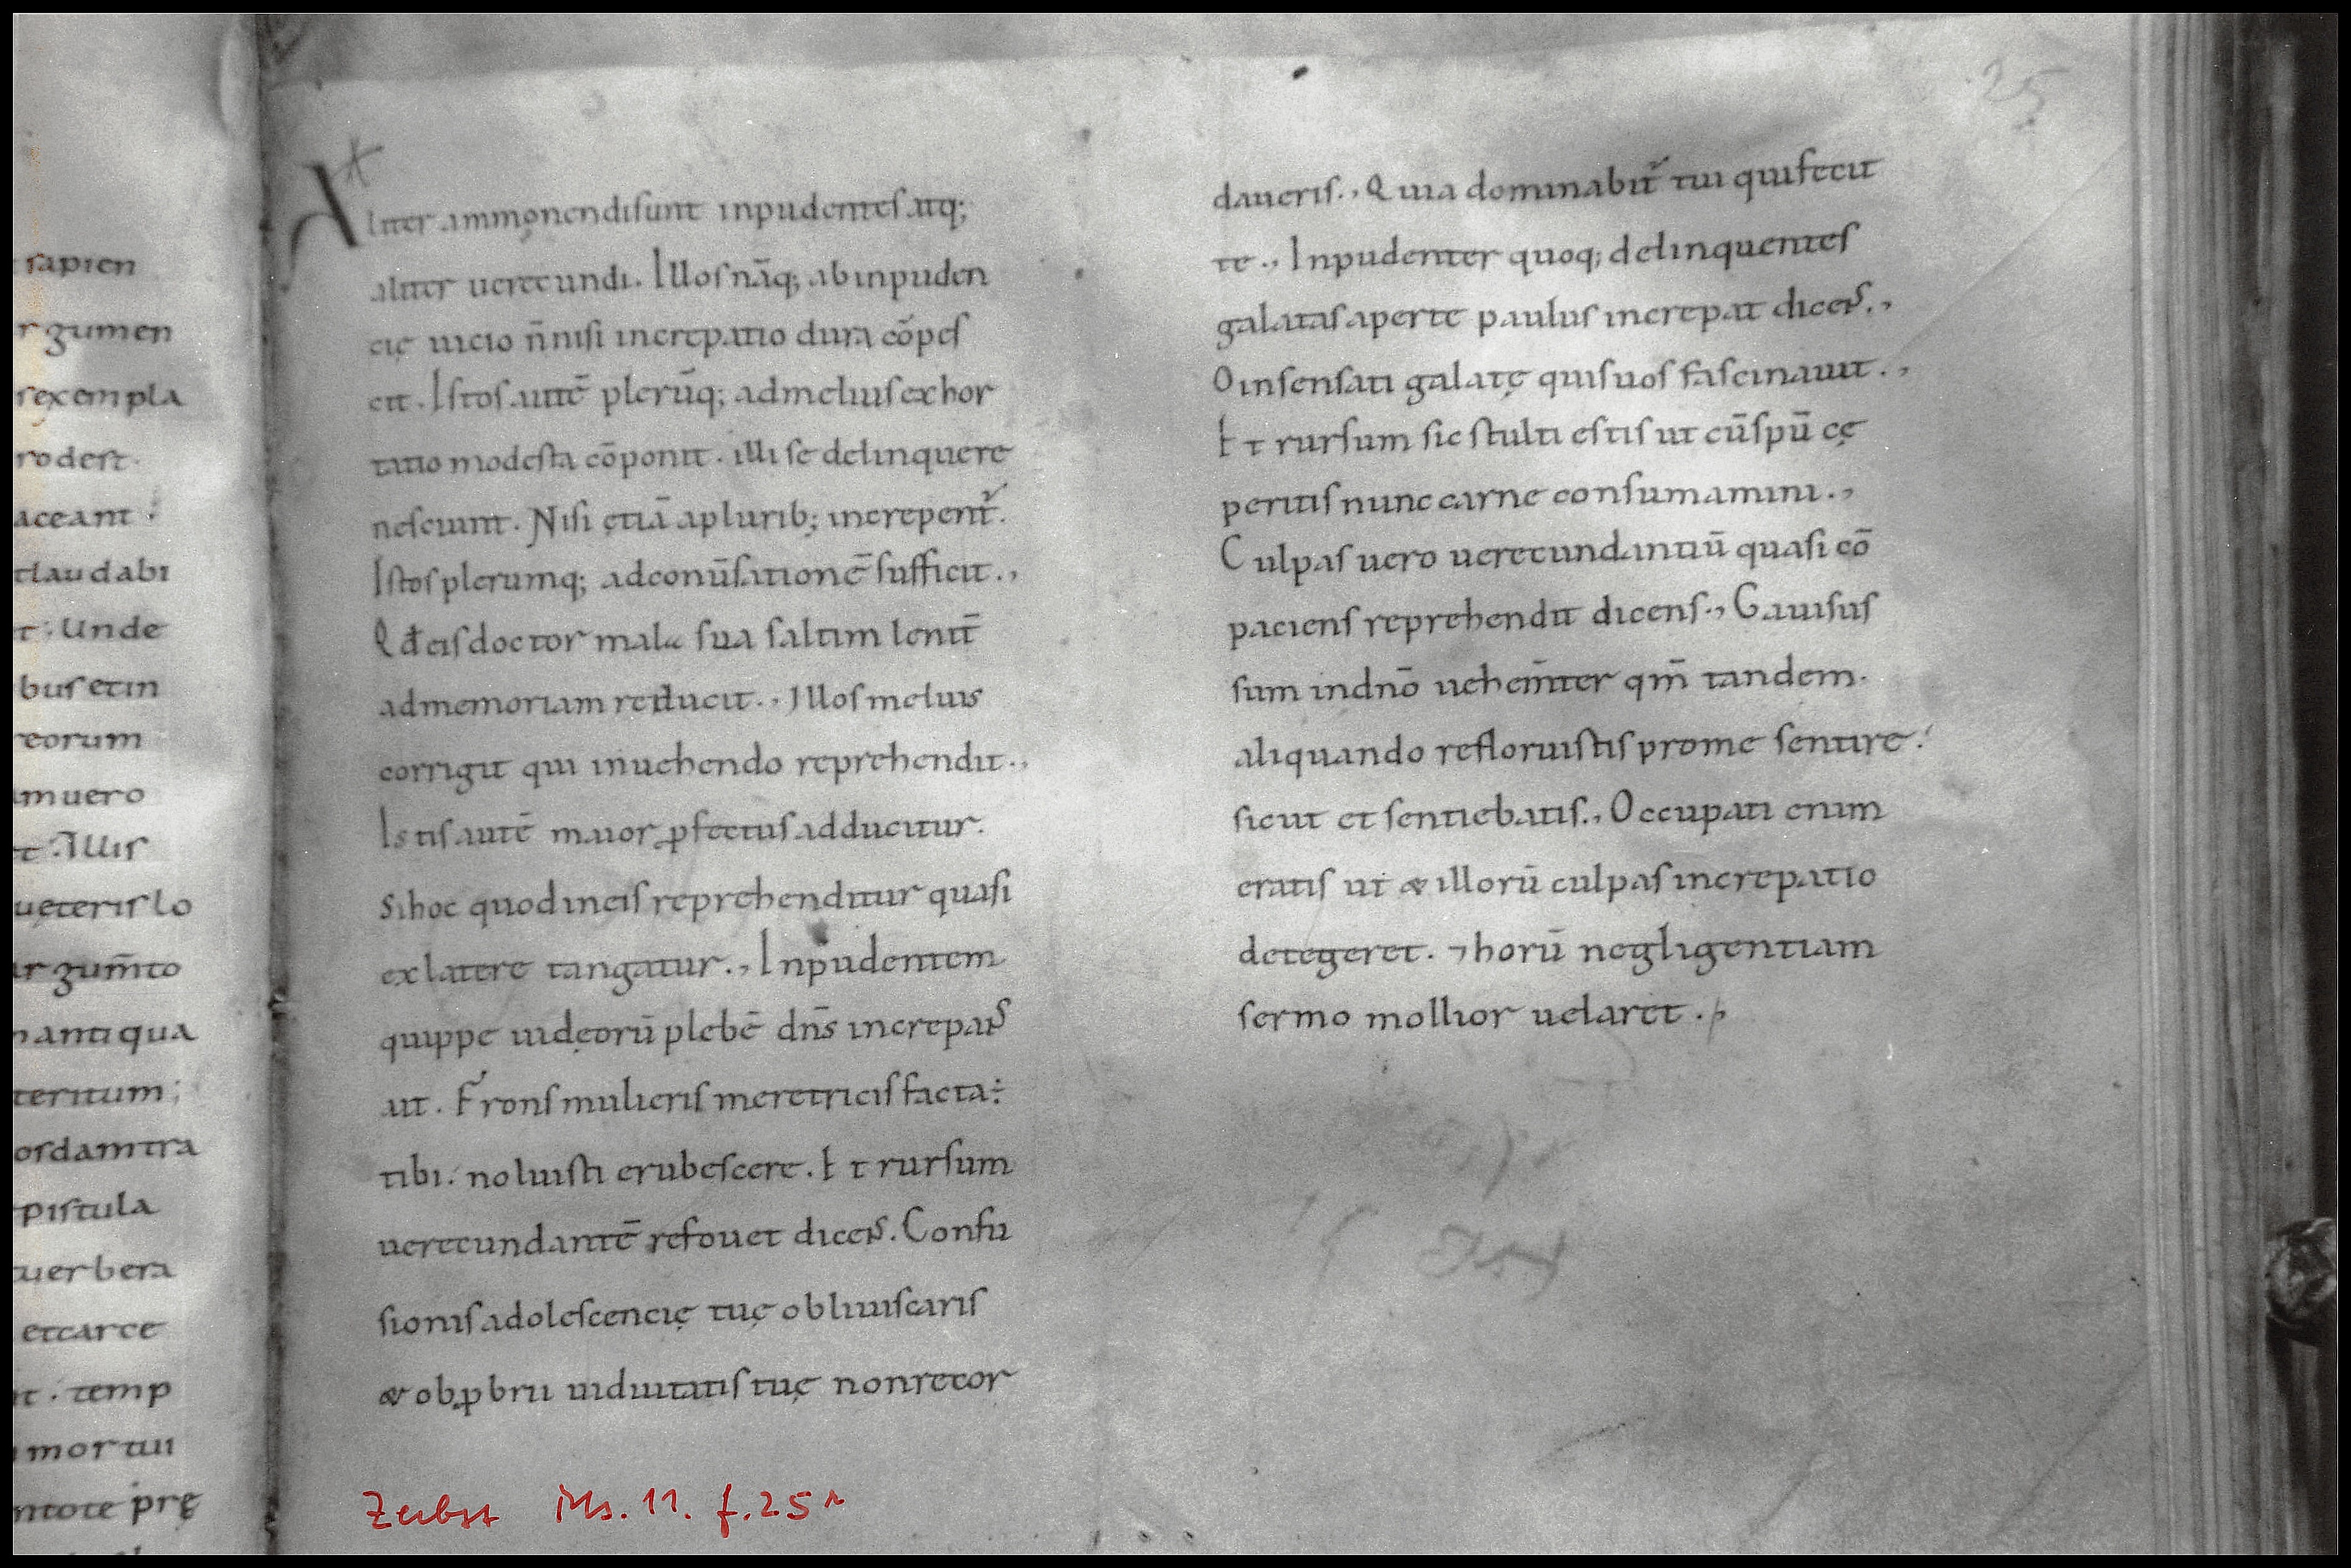 sapien
rgumen
sexempla
rodest.
aceant :
claudabi
t. Unde
bus etin
reorum
muero
t. Illis
ueteris lo
ar gum̄to
nantiqua
teritum;
osdamtra
pistula
uerbera
etcarce
t. temp
mortui
ntote prę
Aliter ammonendisunt inpudentes atq;
aliter uerecundi. Illos nāq; abinpuden
cię uicio n̄nisi increpatio dura cōpes
cit. Istos autē plerūq; admelius exhor
tatio modesta cōponit. illi se delinquere
nesciunt. Nisi etiā aplurib; increpent᷑.
Istos plerumq; adconūsationē sufficit.,
Qđ eis doctor mala sua saltim lenit̄
admemoriam reducit., Illos melius
corrigit qui inuehendo reprehendit.,
Istis autē maior ꝓfectus adducitur.
Sihoc quod ineis reprehenditur quasi
exlatere tangatur., Inpudentem
quippe iudęorū plebē dn̄s increpans
ait. Frons mulieris meretricis facta÷
tibi. noluisti erubescere. Et rursum
uerecundantē refouet dicens. Confu
sionis adolescencię tuę obliuiscaris
& obꝓbrii uiduitatis tuę nonrecor
25
daueris., Quia dominabit᷑ tui quifecit
te., Inpudenter quoq; delinquentes
galatas aperte paulus increpat dicens.,
O insensati galatę quis uos fascinauit.,
Et rursum sic stulti estis ut cūspū cę
peritis nunc carne consumamini.,
Culpas uero uerecundantiū quasi cō
paciens reprehendit dicens., Gauisus
sum indnō uehem̄ter qm̄ tandem.
aliquando refloruistis prome sentire.
sicut et sentiebatis., Occupati enim
eratis ut & illorū culpas increpatio
detegeret. ⁊ horū negligentiam
sermo mollior uelaret.,
Zerbst Ms. 11. f. 25r